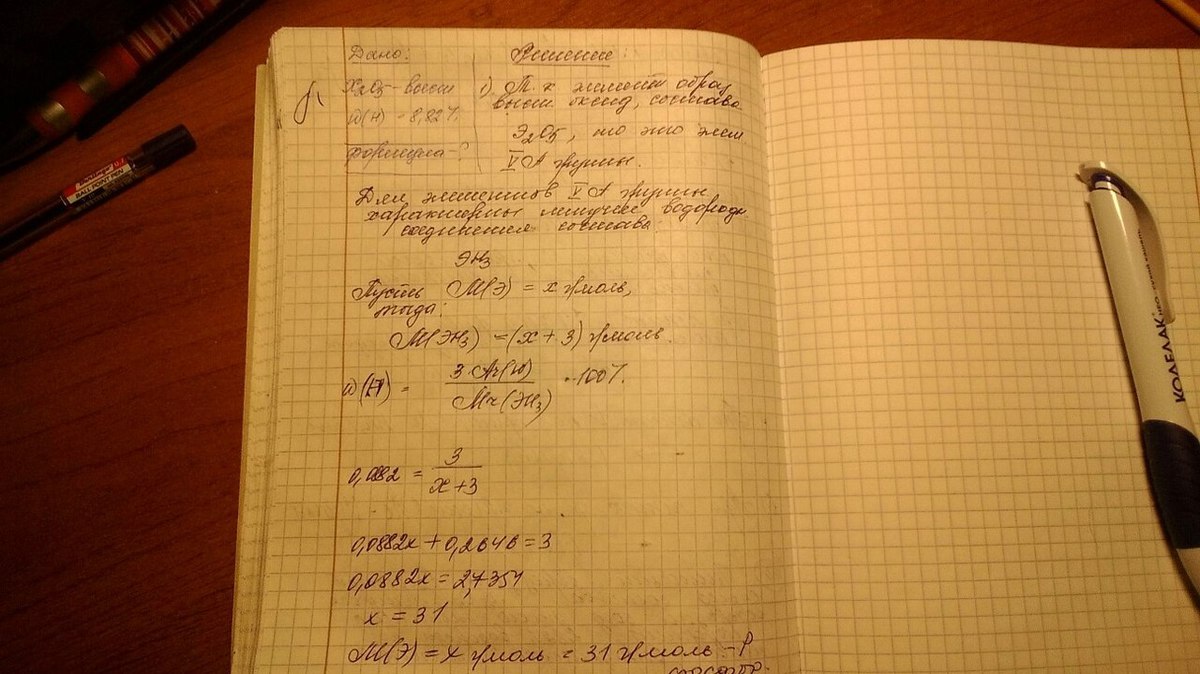 Дано:
X₂O₅ - высш
ω(H) = 8,82%
Формула - ?
Решение:
1) Т.к элемент образ
высш. оксид, состава
Э₂O₅, то это элем
V A группы.
Для элементов V A группы
характерны летучее водородн
соединения состава
ЭH₃
Пусть M(Э) = x г/моль,
тогда:
M(ЭH₃) = (x + 3) г/моль.
ω(H) = 3·Ar(H) / Mr(ЭH₃) · 100%.
0,0882 = 3 / x+3
0,0882x + 0,2646 = 3
0,0882x = 2,7354
x = 31
M(Э) = x г/моль = 31 г/моль - P
фосфор.
BALL POINT PEN
КОДЕЛАК